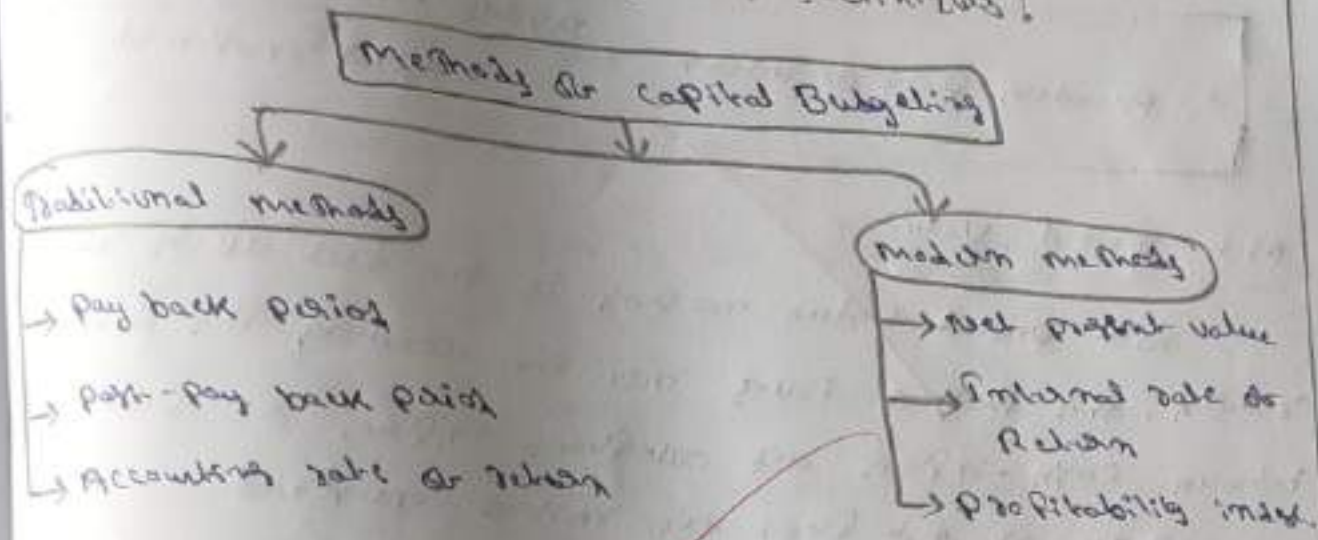 Methods of Capital Budgeting
Traditional methods
Modern methods
→ Pay back period
→ Post-pay back period
→ Accounting rate of return
→ Net present value
→ Internal rate of
Return
→ Profitability index.